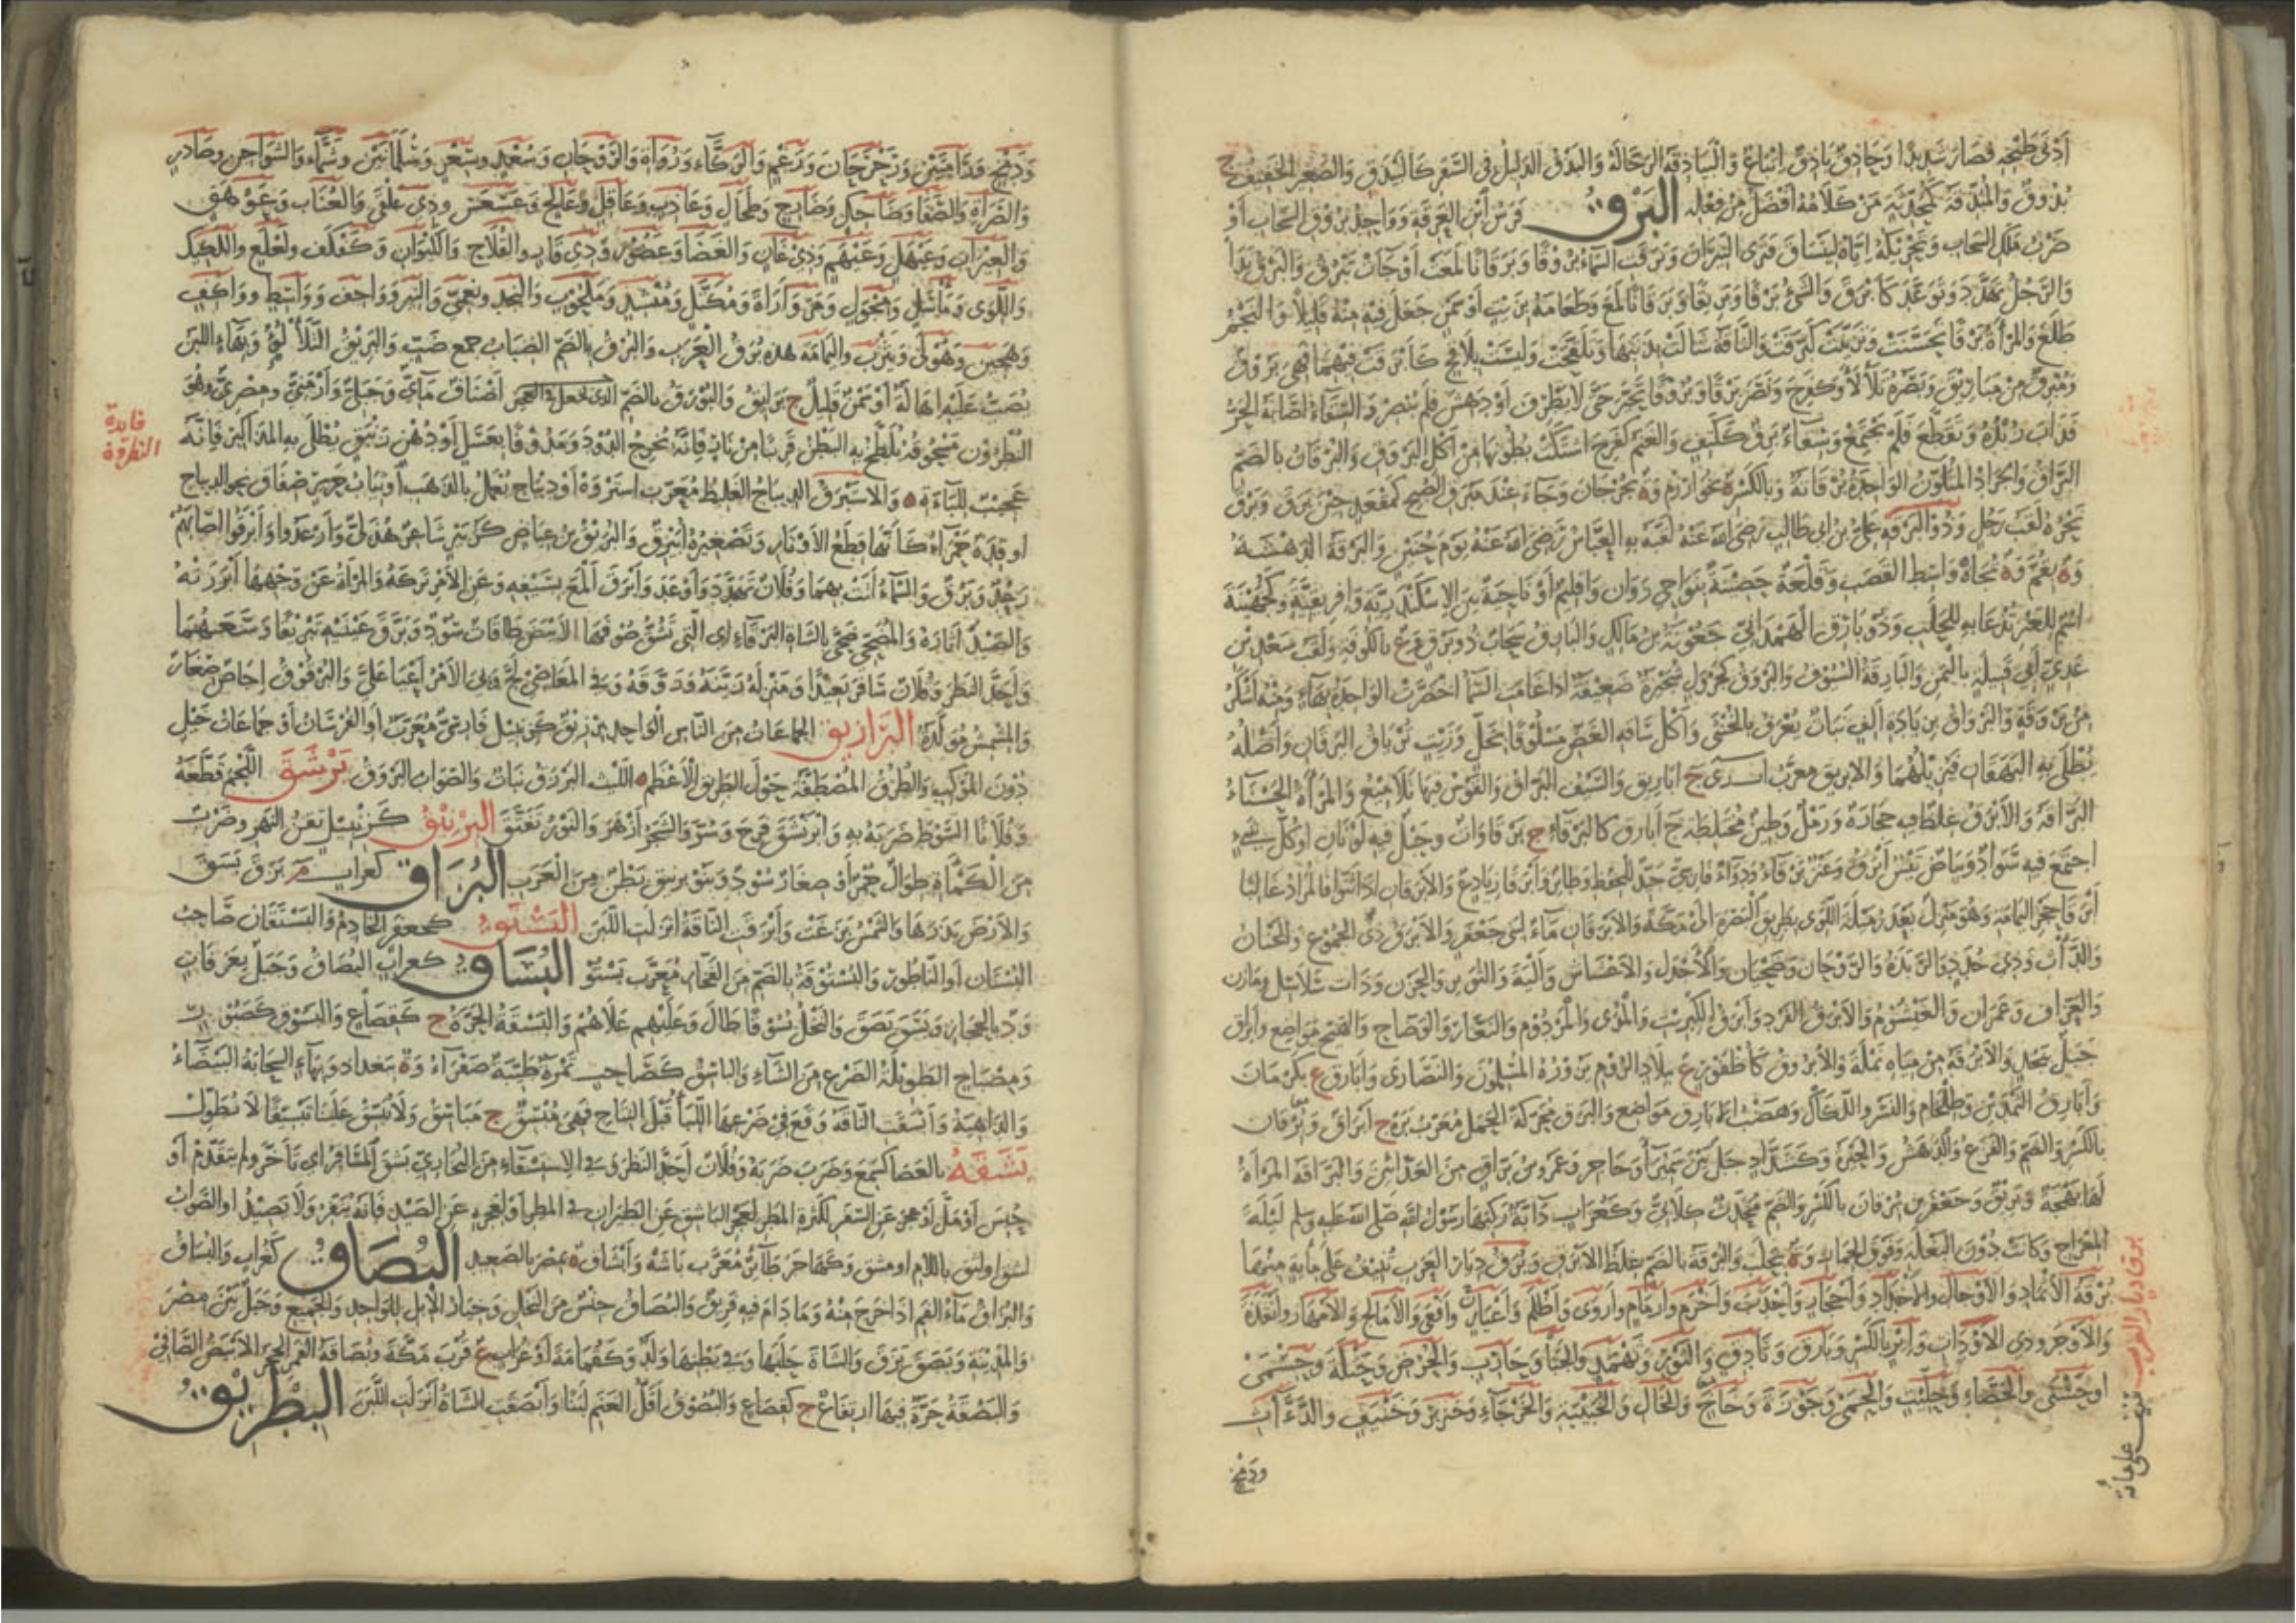 أدنى طبخه فصار شديدا وحاذق باذق إتباع والبياذقة الرجالة والبذق الدليل في السفر كالبيذق والصغير الخفيف ج
بذوق والمبذقة كمحدثة من كلامه أفضل من فعله البرق فرس ابن العرقة وواحد بروق السحاب أو
ضرب ملك السحاب وتحريكه إياه لينساق فترى النيران وبرقت السماء بروقا وبرقانا لمعت أو جاءت ببرق والبرق بدا
والرجل تهدد وتوعد كأبرق والشيء برقا وبريقا وبرقانا لمع وطعامه بزيت أو سمن جعل فيه منه قليلا والنجم
طلع والمرأة برقا تحسنت وتزينت كبرقت والناقة شالت بذنبها وتلقحت وليست بلاقح كأبرقت فيهما فهي بروق
ومبرق من مباريق وبصره تلألأ وكفرح ونصر برقا وبروقا تحير حتى لا يطرف أو دهش فلم يبصر والسقاء أصابه الحر
فذاب زبده وتقطع فلم يجتمع وسقاء برق ككتف والغنم كفرح اشتكت بطونها من أكل البروق والبرقان بالضم
البراق والجراد المتلون الواحدة برقانة وبالكسر ة بخوارزم وة بجرجان وجاء عند مبرق الصبح كمقعد حين برق وبرق
نحره لقب رجل وذو البرقة علي بن أبي طالب رضي الله عنه لقبه به العباس رضي الله عنه يوم حنين والبرقة الدهشة
وة بقم وة تجاه واسط القصب وقلعة حصينة بنواحي دوان وإقليم أو ناحية بين الإسكندرية وإفريقية وكجهينة
اسم للعنز تدعى به للحلب وذو بارق الهمداني جعونة بن مالك والبارق سحاب ذو برق وع بالكوفة ولقب سعد بن
عدي أبي قبيلة باليمن والبارقة السيوف والبروق كجرول شجيرة ضعيفة إذا غامت السماء اخضرت الواحدة بهاء ومنه أشكر
من بروقة والبرواق بزيادة ألف نبات يعرف بالخنثى وأكل ساقه الغض مسلوقا بخل وزيت ترياق اليرقان وأصله
يطلى به البهقان فيزيلهما والإبريق معرب آب ري ج أباريق والسيف البراق والقوس فيها تلاميع والمرأة الحسناء
البراقة والأبرق غلظ فيه حجارة ورمل وطين مختلطة ج أبارق كالبرقاء ج برقاوات وجبل فيه لونان أو كل شيء
اجتمع فيه سواد وبياض تيس أبرق وعنز برقاء ودواء فارسي جيد للحفظ وطائر وأبرقا زياد ع والأبرقان إذا ثنوا فالمراد غالبا
أبرقا حجر اليمامة وهو منزل بعد رميلة اللوى بطريق البصرة إلى مكة والأبرقان ماء لبني جعفر والأبرق ذي الجموع والحنان
والدأاث وذي جدد والربذة والروحان وضحيان والأجدل والأعشاش وألية والثوير والحزن وذات سلاسل ومازن
والعزاف وعمران والعيشوم والأبرق الفرد وأبرق الكبريت والمدى والمردوم والنعار والوضاح والهيج مواضع وأبراق
جبل بنجد والأبرقة من مياه نملة والأبروق كأظفور ع ببلاد الروم يزوره المسلمون والنصارى وأبارق ع بكرمان
وأبارق الثمدين وطلخام والنسر واللكاك وهضب الأبارق مواضع والبرق محركة الحمل معرب بره ج أبراق وبرقان
بالكسر والضم والفزع والدهش والحيرة وكشداد جبل بين سميراء وحاجر وعمرو بن براق من العدائين والبراقة المرأة
لها بهجة وبريق وجعفر بن برقان بالكسر والضم محدث كلابي وكغراب دابة ركبها رسول الله صلى الله عليه وسلم ليلة
المعراج وكانت دون البغلة وفوق الحمار وة بحلب والبرقة بالضم غلظ الأبرق وبرق ديار العرب تنيف على مائة منها
برقة الأثماد والأوجال والأجداد وأحجار وأحدب وأخرم وأرمام وأروى وأظلم وأعيار وأفعى والأمالح والأمهار وأنقد
والأوجر وذي الأوداب وأير بالكسر وبارق وثادق والثور وثهمد والجبا وحارب والحرض وحسلة وحسمى
أو حسنى والحصاء وحليت والحمى وحوزة وحاج والخال والخبيبة والخرجاء وخنزير وخينف والدآث
ودمخ
برق ديار العرب تنيف على مائة
ودمخ ورامتين ورحرحان ورعم والركاء ورواوة والروحان وسعد وسعر وسلمانين وسمنان والشواجن وصادر
والصراة والصفا وضاحك وضارج وطحال وعاذب وعاقل وعالج وعسعس وذي علقى والعناب وعوهق
والعيرات وعيهل وعيهم وذي غان والغضا وغضور وذي قار والقلاخ والكبوان وكفلف ولعلع واللكيك
واللوى ومأسل ومجول ومروراة ومكتل ومنشد وملحوب والنجد ونعمي والنير وواحف وواسط وواكف
وهجين وهولى ويثرب واليمامة هذه برق العرب والبرق بالضم الضباب جمع ضب والبريق التلألؤ وبهاء اللبن
يصب عليه إهالة أو سمن قليل ج برائق والبورق بالضم الذي يجعل في العجين أصناف مائي وجبلي وأرمني ومصري وهو
النطرون مسحوقه يلطخ به البطن قريبا من نار فإنه يخرج الدود ومدوفا بعسل أو دهن زنبق يطلى به المذاكير فإنه
عجيب للباءة والإستبرق الديباج الغليظ معرب استروه أو ديباج يعمل بالذهب أو ثياب حرير صفاق نحو الديباج
أو قدة حمراء كأنها قطع الأوتار وتصغيره أبيرق والبريق بن عياض كزبير شاعر هذلي وأرعدوا وأبرقوا أصابهم
رعد وبرق والسماء أتت بهما وفلان تهدد وأوعد وأبرق ألمع بسيفه وعن الأمر تركه والمرأة عن وجهها أبرزته
والصيد أثاره والمضحي ضحى بالشاة البرقاء أي التي تشق صوفها الأبيض طاقات سود وبرق عينيه تبريقا وسعهما
وأحد النظر وفلان سافر بعيدا ومنزله زينه وزوقه وفي المعاصي لج وبي الأمر أعيا علي والبرقوق إجاص صغار
والمشمش مولدة البرازيق الجماعات من الناس الواحد برزيق كزنبيل فارسي معرب أو الفرسان أو جماعات خيل
دون الموكب والطرق المصطفة حول الطريق الأعظم الليث البرزق نبات والصواب البروق برشق اللحم قطعه
وفلانا بالسوط ضربه به وابرنشق فرح وسر والشجر أزهر والنور تفتق البرنيق كزنبيل تقن النهر وضرب
من الكمأة طوال حمر أو صغار سود وبنو برنيق بطن من العرب البزاق كغراب م بزق بسق
والأرض بذرها والشمس بزغت وأبزقت الناقة أنزلت اللبن البستق كجعفر الخادم والبستقان صاحب
البستان أو الناطور والبستوقة بالضم من الفخار معرب بستو البساق كغراب البصاق وجبل بعرفات
ود بالحجاز وبسق بصق والنخل بسوقا طال وعليهم علاهم والبسقة الحرة ج كقصاع والبسوق كصبور
ومصباح الطويلة الضرع من الشاء والباسق كصاحب ثمرة طيبة صفراء وة ببغداد وبهاء السحابة البيضاء
والداهية وأبسقت الناقة وقع في ضرعها اللبأ قبل النتاج فهي مبسق ج مباسيق ولا تبسق علينا تبسيقا لا تطول
بشقه بالعصا كسمع وضرب ضربه وفلان أحد النظر وفي الاستسقاء من البخاري بشق المسافر أي تأخر ولم يتقدم أو
حبس أو مل أو عجز عن السفر لكثرة المطر لعجز الباشق عن الطيران في المطر أو لعجزه عن الصيد فإنه ينفر ولا يصيد أو الصواب
لشق أو لثق باللام أو مشق وكهاجر طائر معرب باشه وأبشاق ة بمصر بالصعيد البصاق كغراب والبساق
والبزاق ماء الفم إذا خرج منه وما دام فيه فريق والبصاق جنس من النخل وخيار الإبل للواحد والجميع وجبل بين مصر
والمدينة وبصق بزق والشاة حلبها وفي بطنها ولد وكثمامة أو غراب ع قرب مكة وبصاقة القمر الحجر الأبيض الصافي
والبصقة حرة فيها ارتفاع ج كقصاع والبصوق أقل الغنم لبنا وأبصقت الشاة أنزلت اللبن البطريق
فايدة
النطرون